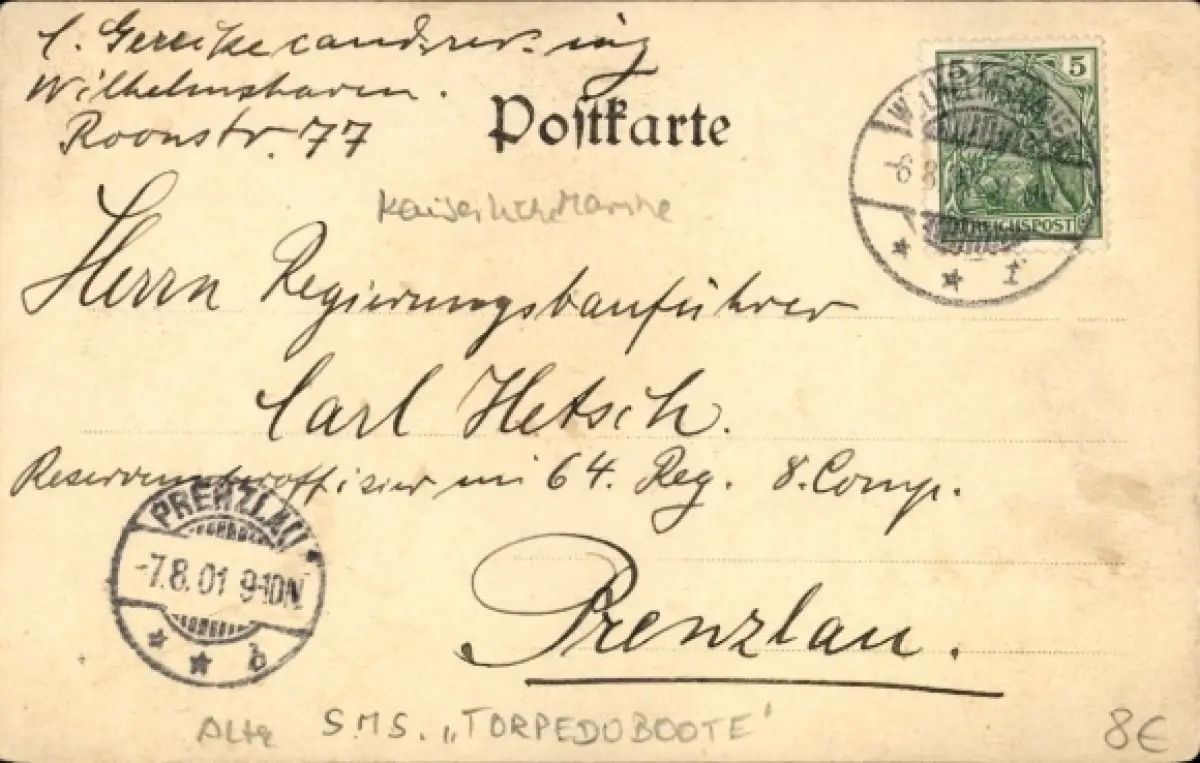 C. Gereike cand. rer. ing
Wilhelmshaven.
Roonstr. 77
Postkarte
5 5
REICHSPOST
WILHELMSHAVEN
8
1
Kaiserlich. Marine
Herrn Regierungsbauführer
Carl Hetsch.
Reserveunteroffizier im 64. Reg. 8. Comp.
PRENZLAU
-7.8.01 9-10N.
b
Prenzlau.
Alte S.M.S. „TORPEDOBOOTE"
8€